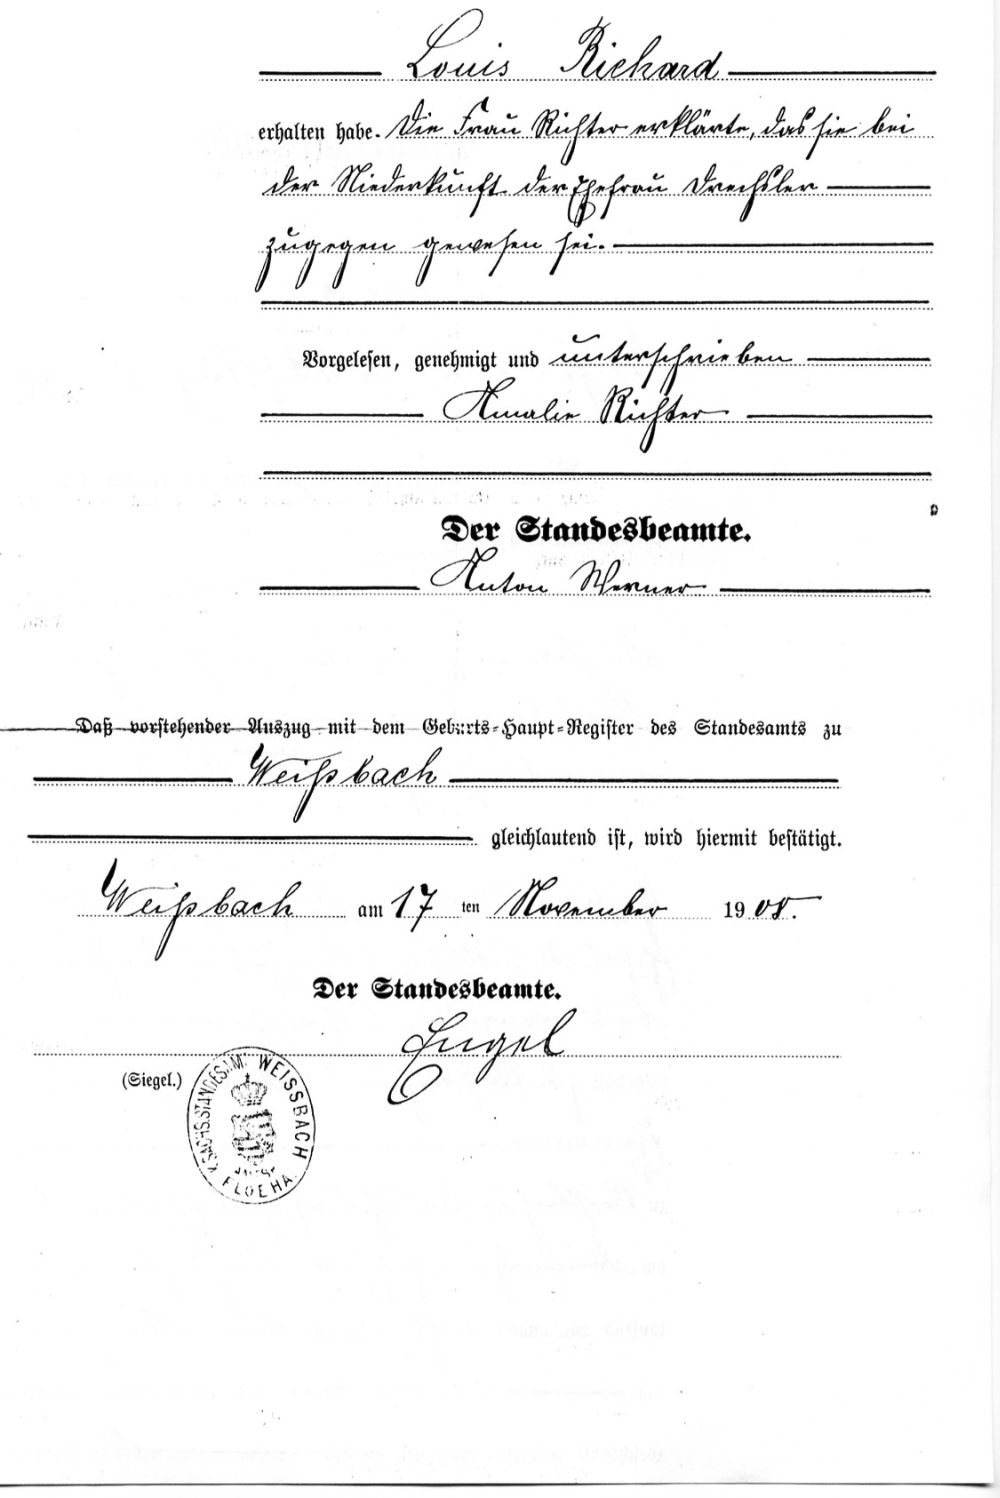 Louis Richard
erhalten habe. Die Frau Richter erklärte, das sie bei
der Niederkunft der Ehefrau Drechsler
zugegen gewesen sei.
Vorgelesen, genehmigt und unterschrieben
Amalie Richter
Der Standesbeamte.
Anton Werner
Daß vorstehender Auszug mit dem Geburts-Haupt-Register des Standesamts zu
Weißbach
gleichlautend ist, wird hiermit bestätigt.
Weißbach am 17 ten November 1908.
Der Standesbeamte.
Engel
(Siegel.)
K. SÄCHS. STANDESAMT WEISSBACH
FLOEHA